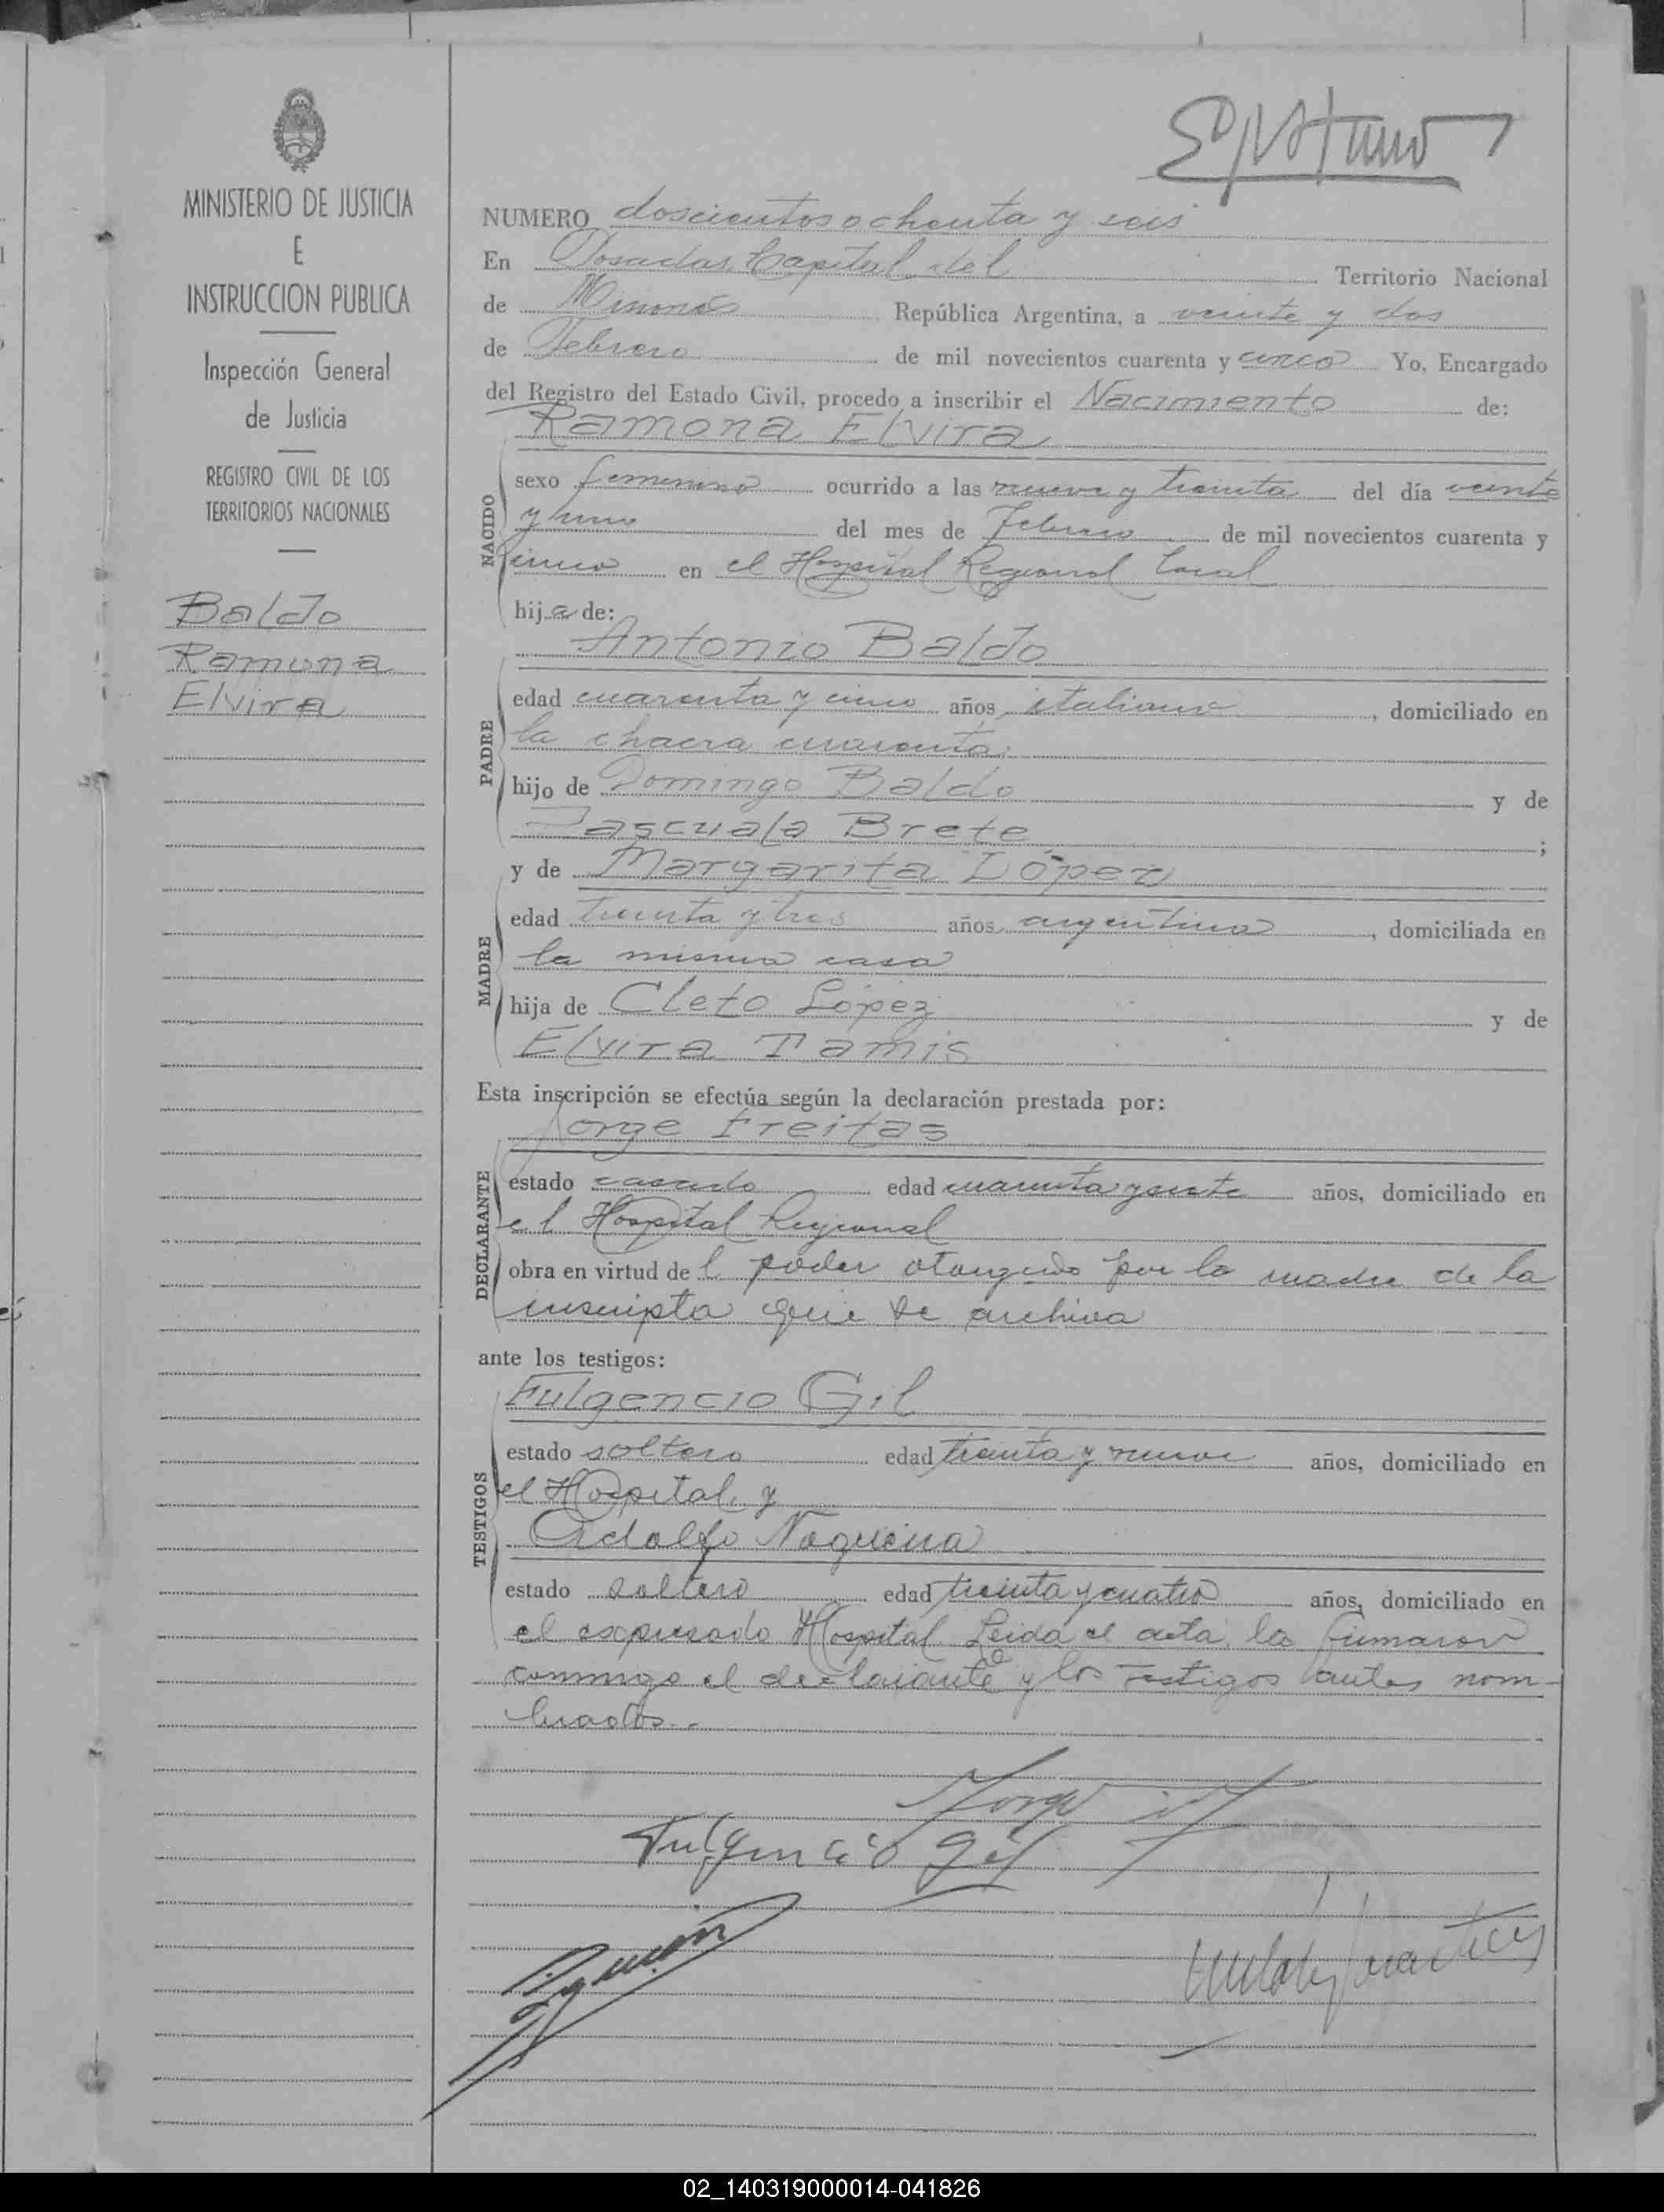 MINISTERIO DE JUSTICIA
E
INSTRUCCION PUBLICA
Inspección General
de Justicia
REGISTRO CIVIL DE LOS
TERRITORIOS NACIONALES
Baldo
Ramona
Elvira
NUMERO doscientos ochenta y seis
En Posadas Capital del Territorio Nacional
de Misiones República Argentina, a veinte y dos
de Febrero de mil novecientos cuarenta y cinco Yo, Encargado
del Registro del Estado Civil, procedo a inscribir el Nacimiento de:
Ramona Elvira
NACIDO
sexo femenino ocurrido a las nueve y treinta del día veinte
y uno del mes de Febrero de mil novecientos cuarenta y
cinco en el Hospital Regional local
hija de:
Antonio Baldo
PADRE
edad cuarenta y cinco años, italiano, domiciliado en
la chacra cuarenta.
hijo de Domingo Baldo y de
Pascuala Brete;
y de Margarita López
MADRE
edad treinta y tres años, argentina, domiciliada en
la misma casa
hija de Cleto López y de
Elvira Tamis
Esta inscripción se efectúa según la declaración prestada por:
Jorge Freitas
DECLARANTE
estado casado edad cuarenta y siete años, domiciliado en
el Hospital Regional
obra en virtud del poder otorgado por la madre de la
inscripta que se archiva
ante los testigos:
Fulgencio Gil
TESTIGOS
estado soltero edad treinta y nueve años, domiciliado en
el Hospital y
Adolfo Nogueira
estado soltero edad treinta y cuatro años, domiciliado en
el expresado Hospital Leida el acta, la firmaron
conmigo el declarante y los testigos antes nom-
brados.-
Jorge
Fulgencio Gil
02_140319000014-041826